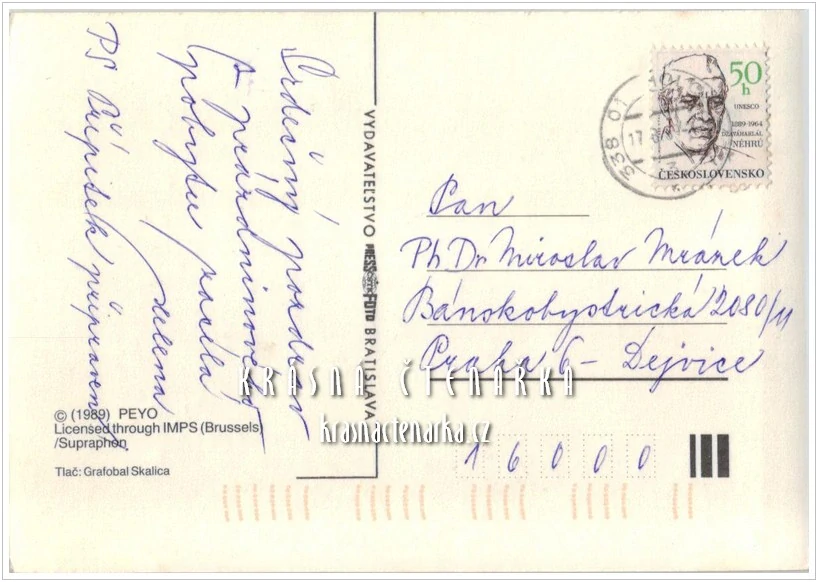 Srdečný pozdrav
z prázdninového
pobytu posílá
Helena
PS Přípitek připraven
© (1989) PEYO
Licensed through IMPS (Brussels)
/Supraphon
Tlač: Grafobal Skalica
VYDAVATEĽSTVO PRESSFOTO BRATISLAVA
50
h
UNESCO
1889-1964
DŽAVÁHARLÁL
NÉHRÚ
ČESKOSLOVENSKO
338 01
17
Pan
PhDr Miroslav Mránek
Bánskobystrická 2080/11
Praha 6 - Dejvice
16000
KRÁSNÁ ČTENÁRKA
krasnactenarka.cz